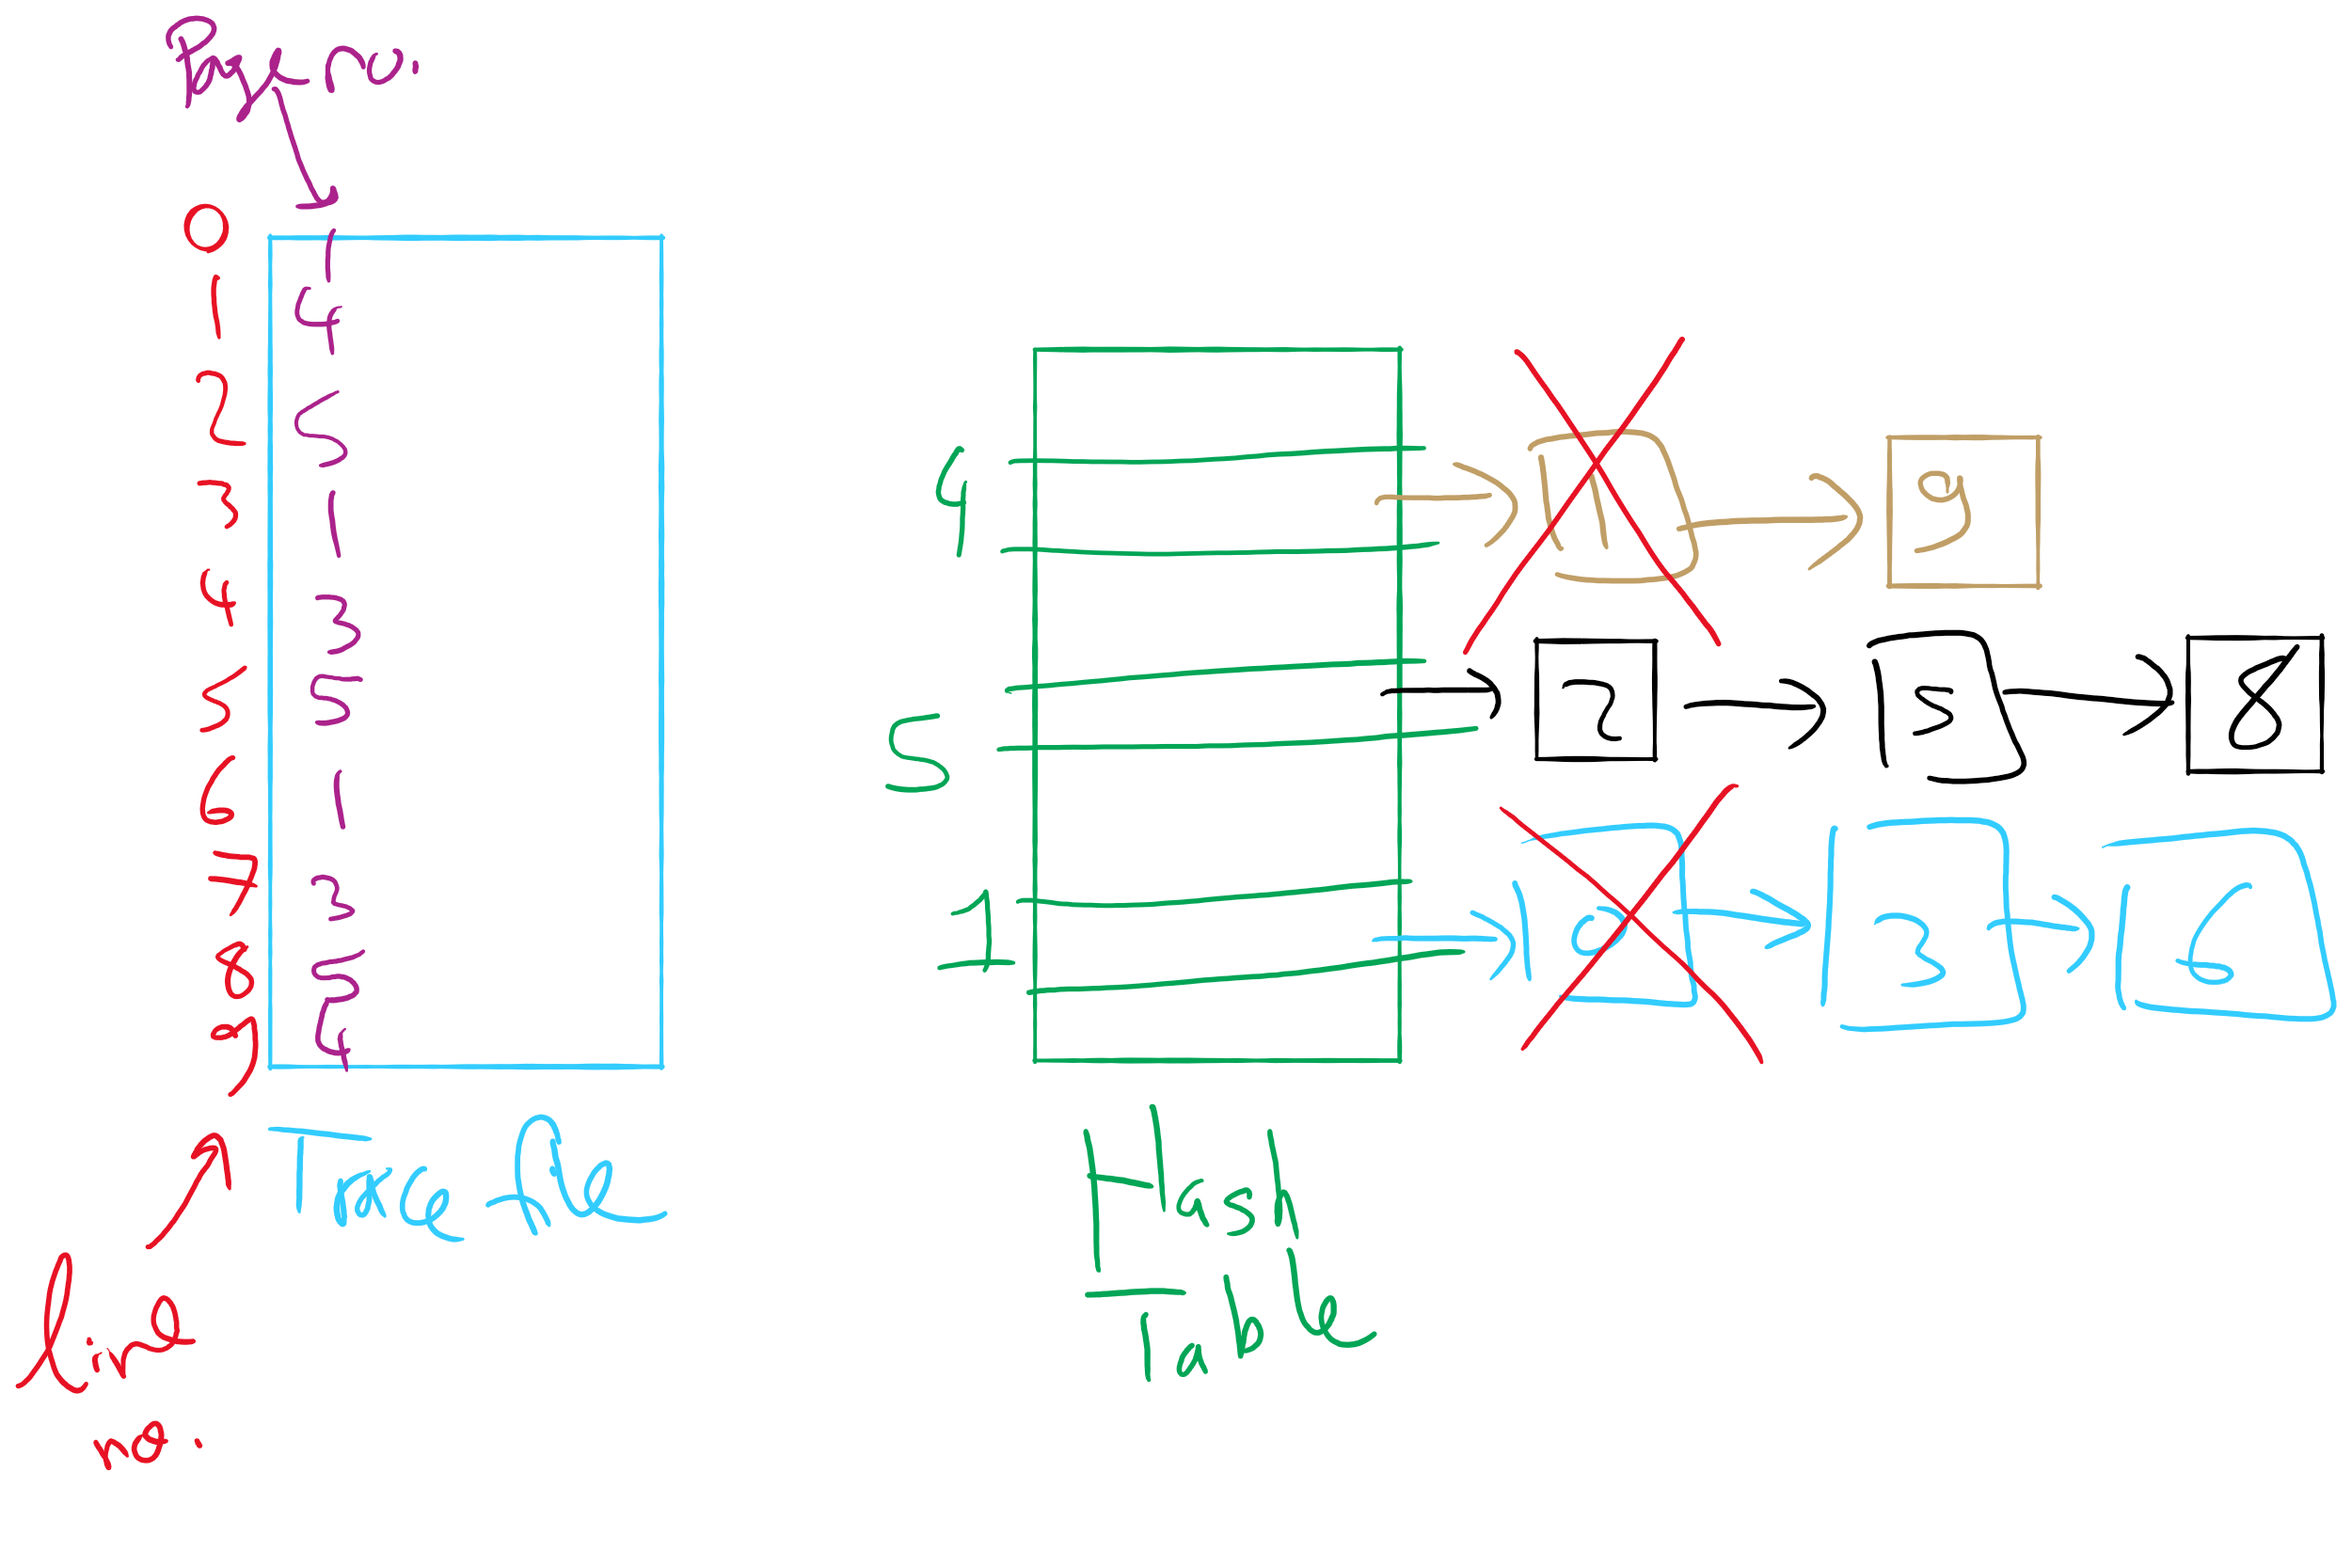 Page no.
0 1
1 4
2 5
3 1
4 3
5 5
6 1
7 3
8 5
9 4
Trace file
line
no.
4 1 9
5 2 5 8
1 0 3 6
Hash
Table